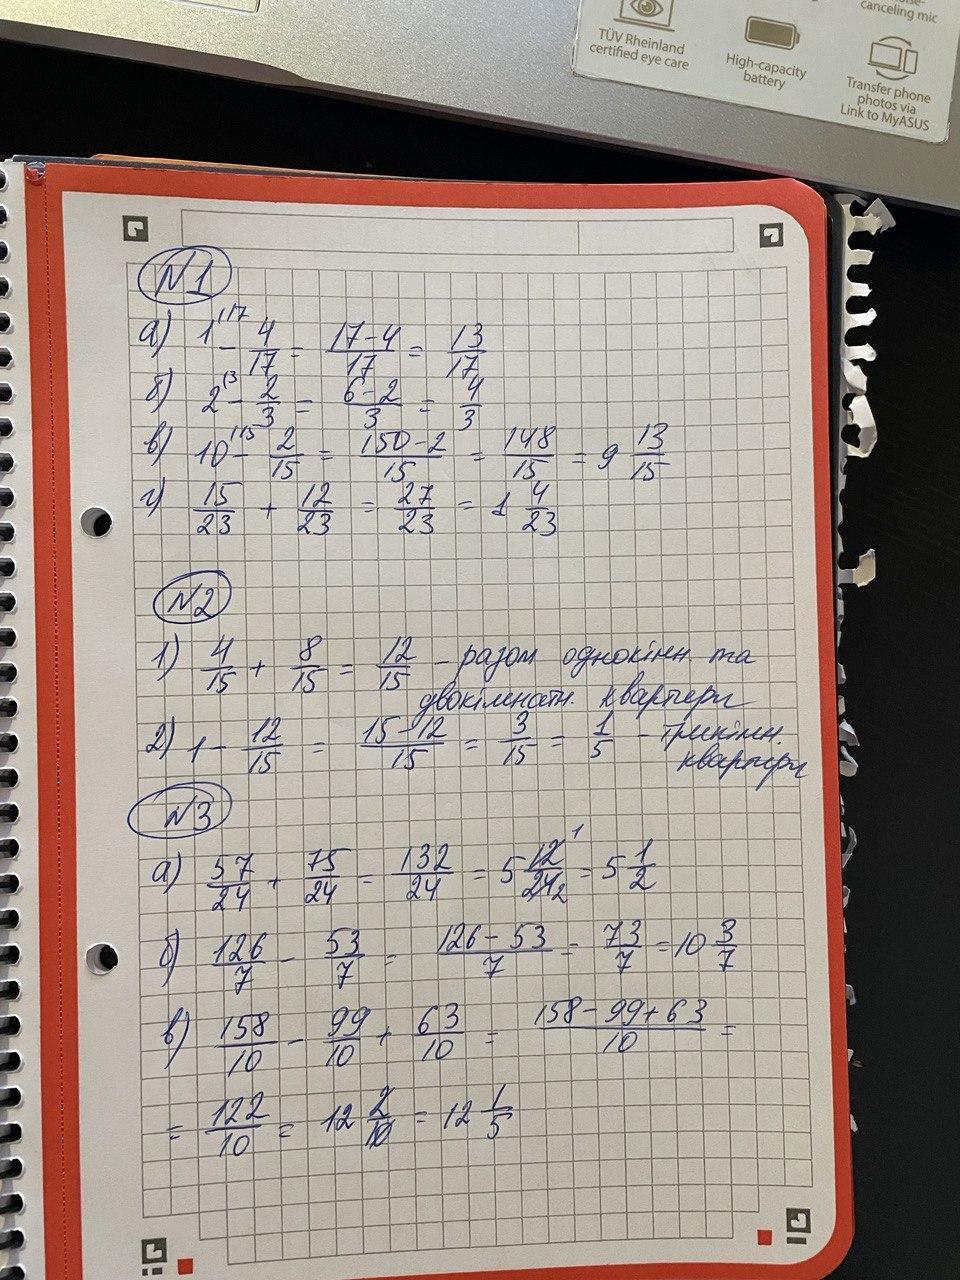 TÜV Rheinland
certified eye care
High-capacity
battery
canceling mic
Transfer phone
photos via
Link to MyASUS
N1
а) 1^{/17} - 4/17 = (17-4)/17 = 13/17
б) 2^{/3} - 2/3 = (6-2)/3 = 4/3
в) 10^{/15} - 2/15 = (150-2)/15 = 148/15 = 9 13/15
г) 15/23 + 12/23 = 27/23 = 1 4/23
N2
1) 4/15 + 8/15 = 12/15 - разом однокімн. та
двокімнатн. квартири
2) 1 - 12/15 = (15-12)/15 = 3/15 = 1/5 - трикімн.
квартири
N3
а) 57/24 + 75/24 = 132/24 = 5 12/24 = 5 1/2
б) 126/7 - 53/7 = (126-53)/7 = 73/7 = 10 3/7
в) 158/10 - 99/10 + 63/10 = (158-99+63)/10 =
= 122/10 = 12 2/10 = 12 1/5